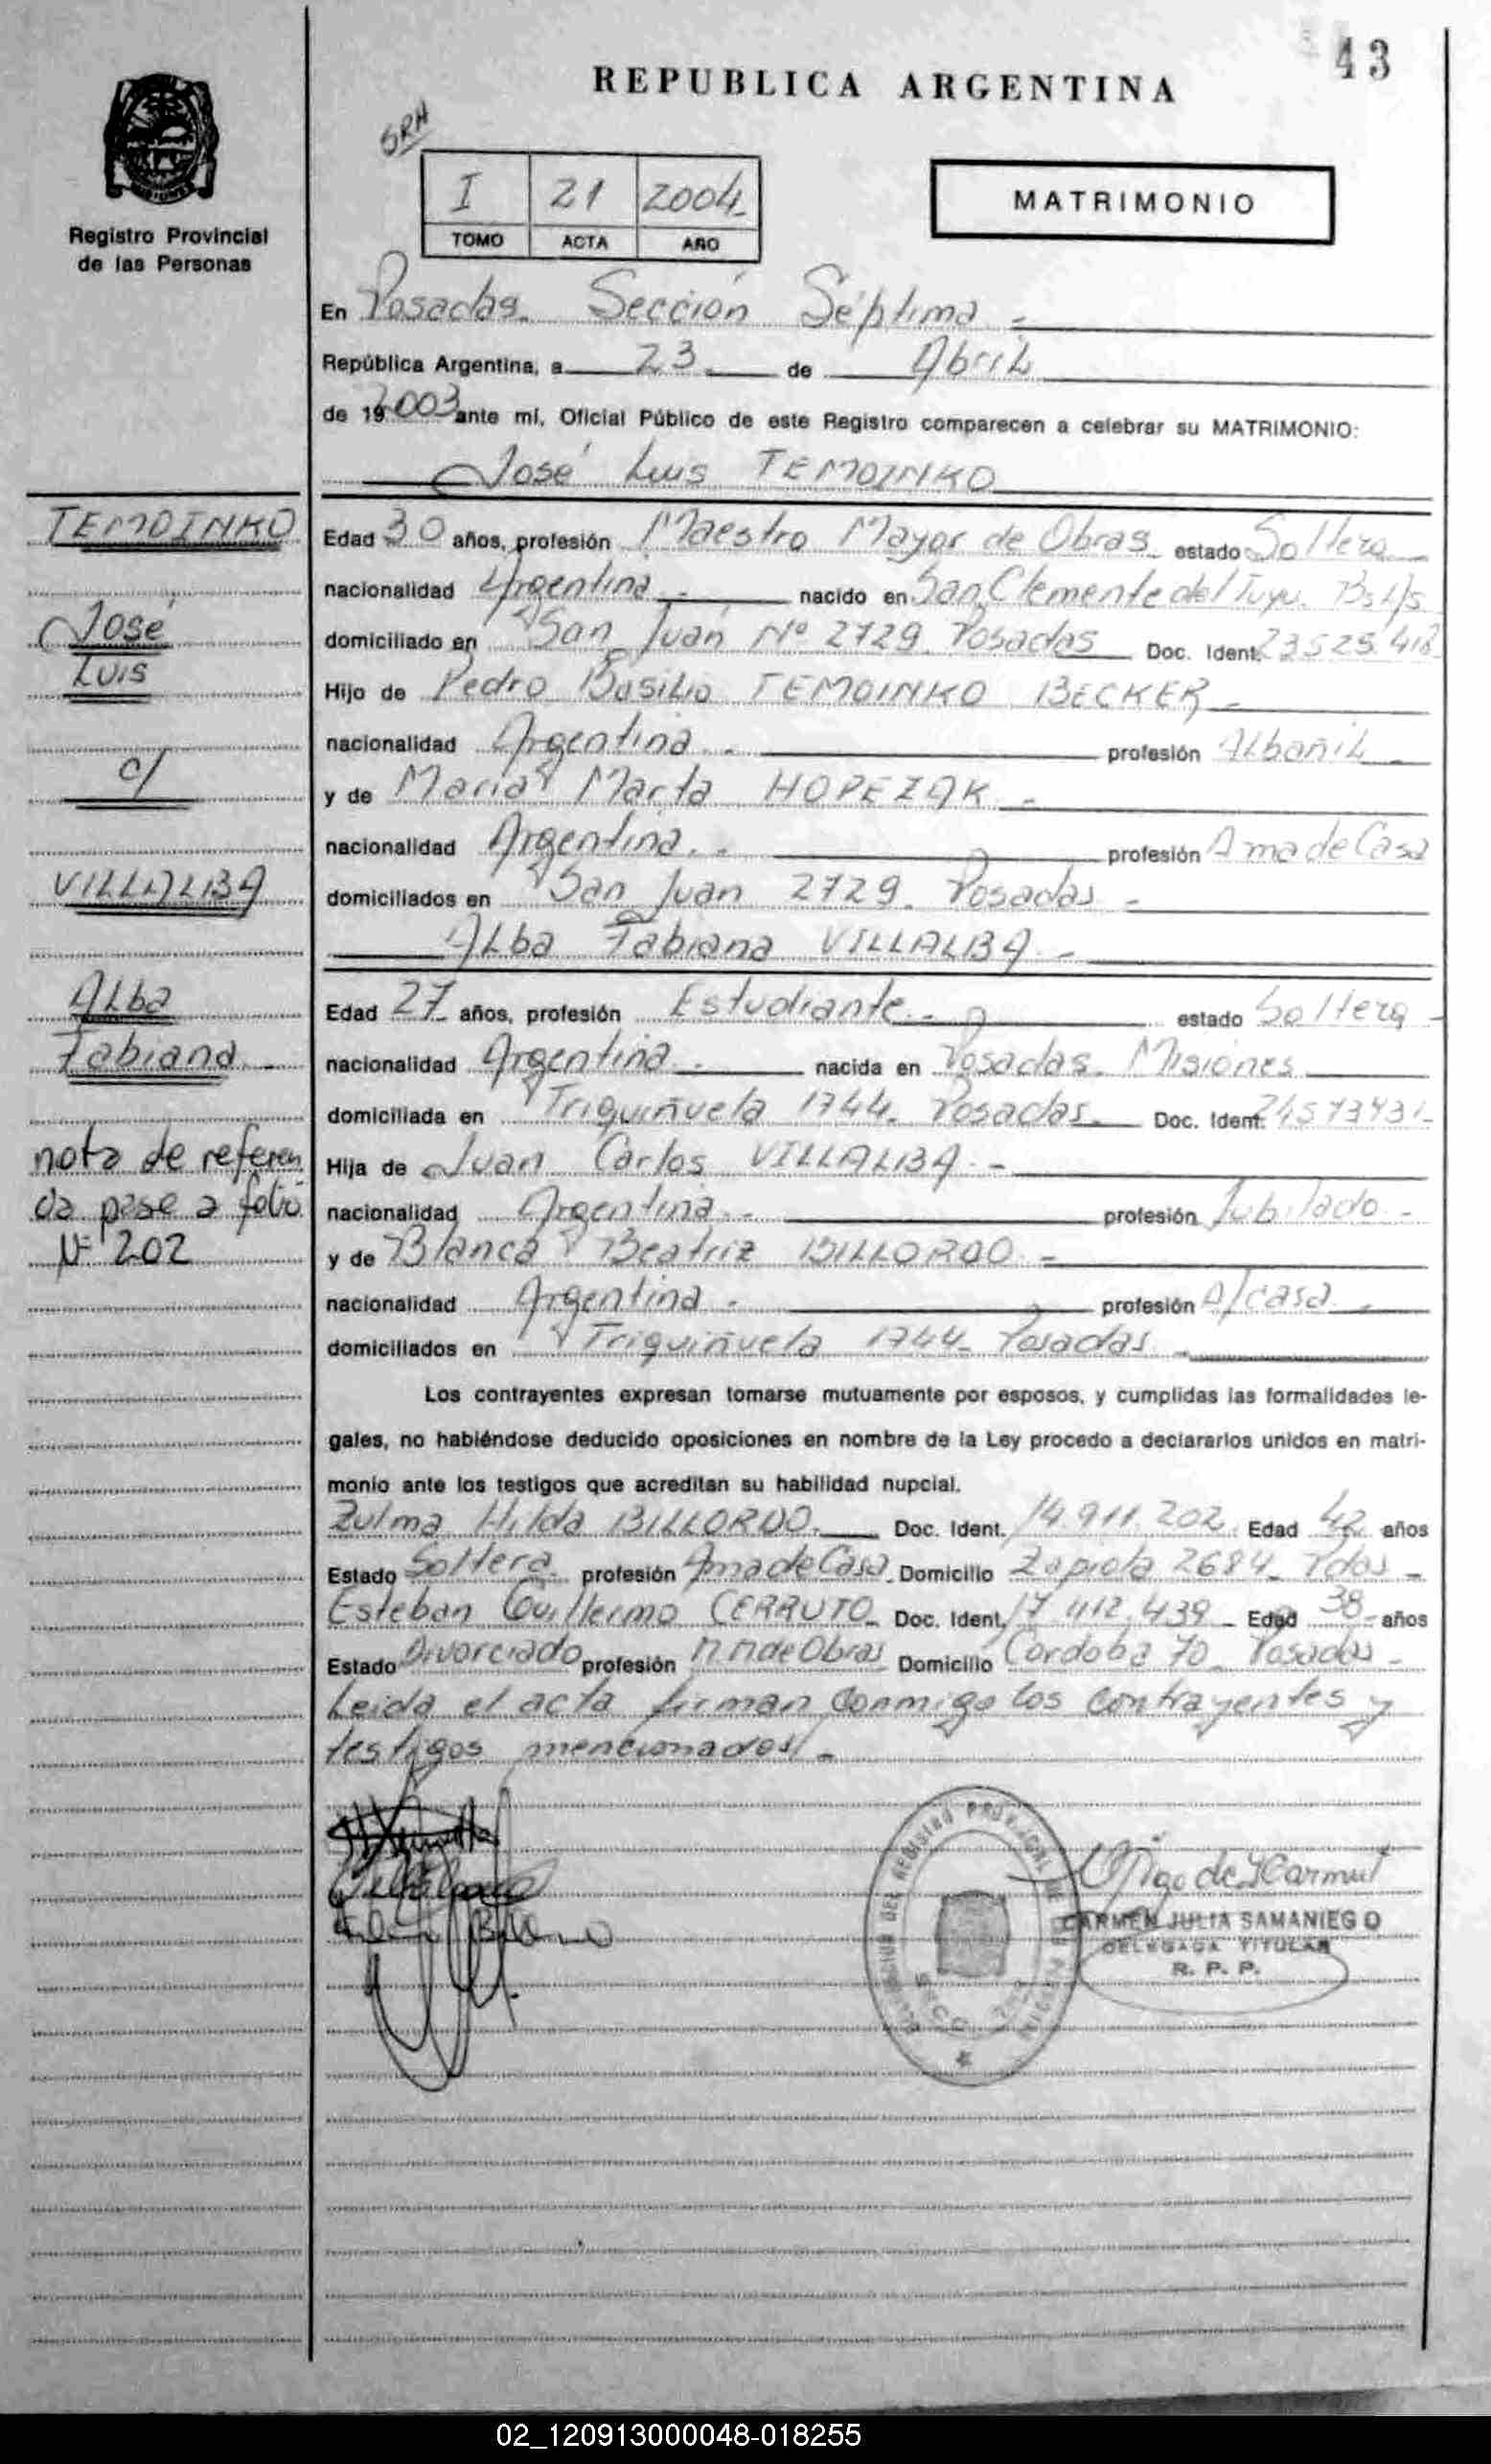 43
REPUBLICA ARGENTINA
SRH
I 21 2004
TOMO ACTA AÑO
MATRIMONIO
Registro Provincial
de las Personas
En Posadas. Sección Séptima -
República Argentina, a 23 de Abril
de 192003 ante mí, Oficial Público de este Registro comparecen a celebrar su MATRIMONIO:
José Luis TEMOINKO
Edad 30 años, profesión Maestro Mayor de Obras estado Soltero
nacionalidad Argentina - nacido en San Clemente del Tuyu. Bs As
domiciliado en San Juan Nº 2729 Posadas Doc. Ident. 23.525.418
Hijo de Pedro Basilio TEMOINKO BECKER -
nacionalidad Argentina - profesión Albañil -
y de María Marta HOPEZAK -
nacionalidad Argentina. - profesión Ama de Casa
domiciliados en San Juan 2729. Posadas -
Alba Fabiana VILLALBA -
Edad 27 años, profesión Estudiante - estado Soltera -
nacionalidad Argentina - nacida en Posadas. Misiones
domiciliada en Triguiñuela 1744. Posadas. Doc. Ident.
Hija de Juan Carlos VILLALBA -
nacionalidad Argentina - profesión Jubilado -
y de Blanca Beatriz BILLORDO -
nacionalidad Argentina - profesión A/casa -
domiciliados en Triguiñuela 1744 - Posadas -
Los contrayentes expresan tomarse mutuamente por esposos, y cumplidas las formalidades le-
gales, no habiéndose deducido oposiciones en nombre de la Ley procedo a declararlos unidos en matri-
monio ante los testigos que acreditan su habilidad nupcial.
Zulma Hilda BILLORDO. Doc. Ident. 14.911.202 Edad 42 años
Estado Soltera profesión Ama de Casa Domicilio Zapiola 2684 - Pdas -
Esteban Guillermo CERRUTO Doc. Ident. 17.412.439 - Edad 38 - años
Estado Divorciado profesión M.M de Obras Domicilio Cordoba 70 - Posadas -
Leida el acta firman conmigo los contrayentes y
testigos mencionados -
TEMOINKO
José
Luis
c/
VILLALBA
Alba
Fabiana
nota de referen
cia pase a folio
Nº 202
CARMEN JULIA SAMANIEGO
DELEGADA TITULAR
R. P. P.
02_120913000048-018255